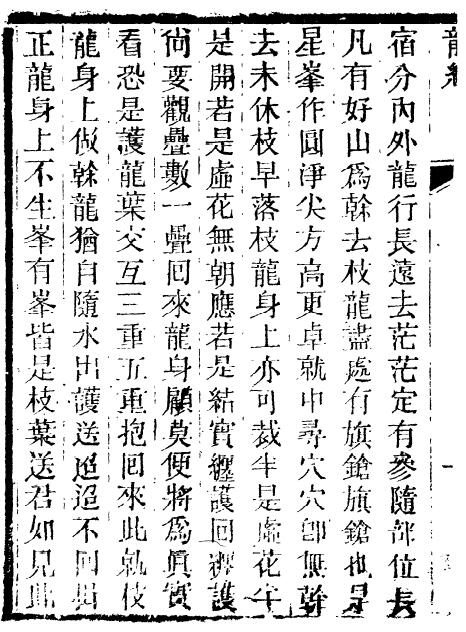 龍經
宿分內外龍行長遠去茫茫定有參隨部位長
凡有好山為幹去枝龍盡處有旗鎗旗鎗也是
星峯作圓淨尖方高更卓就中尋穴穴卽無幹
去未休枝早落枝龍身上亦可裁半是虛花半
是開若是虛花無朝應若是結實纏護回纏護
尙要觀疊數一疊回來龍身顧莫便將為眞實
看恐是護龍葉交互三重五重抱回來此就枝
龍身上做幹龍猶自隨水出護送迢迢不回
正龍身上不生峯有峯皆是枝葉送君如見此